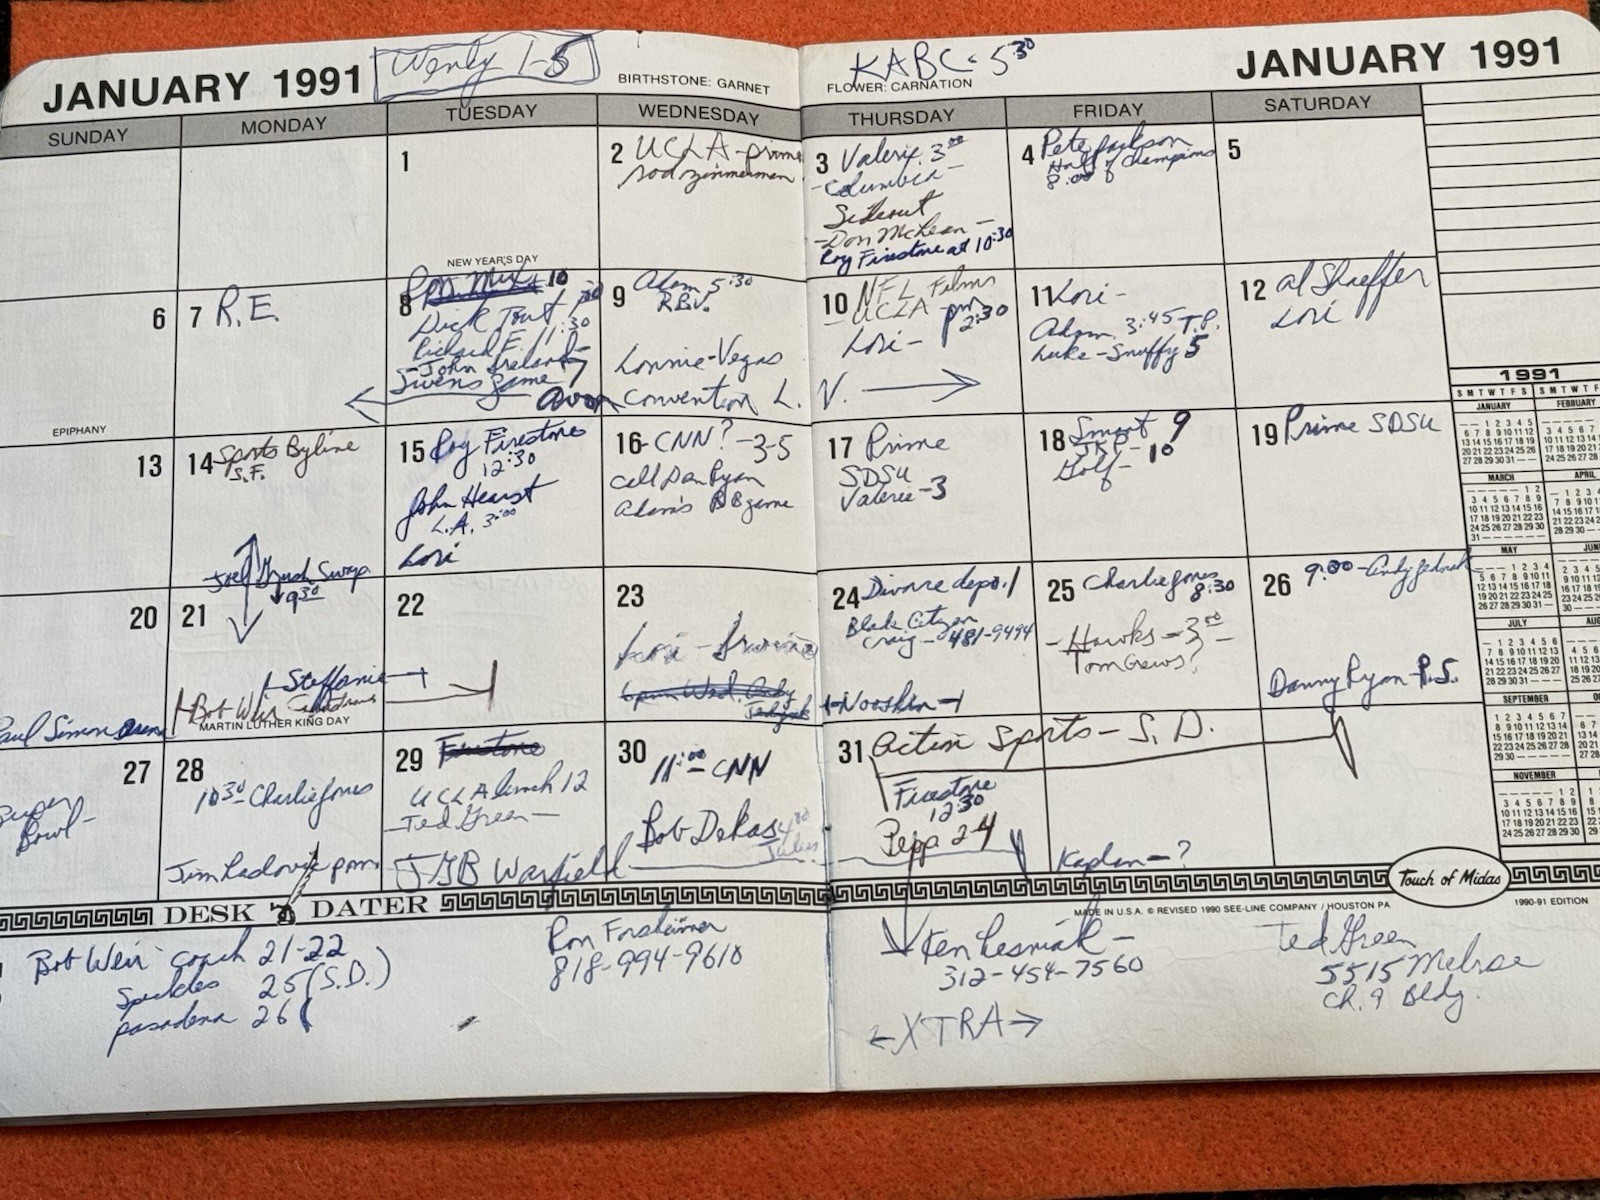 JANUARY 1991
Wendy 1-5
BIRTHSTONE: GARNET
KABC - 5:30
FLOWER: CARNATION
JANUARY 1991
SUNDAY MONDAY TUESDAY WEDNESDAY THURSDAY FRIDAY SATURDAY
1
NEW YEAR'S DAY
2 UCLA - prime
rod zimmerman
3 Valerie 3:00
- Columbia -
Sideout
- Don McLean -
Roy Firestone at 10:30
4 Pete Jackson
Hall of Champions
8:00
5
6
EPIPHANY
7 R.E.
8
10
Dick
Richard E. 11:30
John Ireland
game 7
9 Adam 5:30
RBV.
Lonnie - Vegas
Convention L.
10 NFL Films
- UCLA - pm
Lori - 2:30
V.
11 Lori -
Adam 3:45 T.P.
Luke - Snuffy 5
12 Al Shaeffer
Lori
13
14 Sports Byline
S.F.
Joel Swap
9:30
15 Roy Firestone
12:30
John Hearst
L.A. 3:00
Lori
16 - CNN? - 3-5
call Dan Ryan
Adam's BB game
17 Prime
SDSU
Valerie - 3
18 Smart 9
Golf - 10
19 Prime SDSU
20
Paul Simon arena
21
Steffanie
Bob Weir
MARTIN LUTHER KING DAY
22
23
Lori - Irvine
6pm Wed. Andy
24 Divorce depo. 1
Blade Citizen
Craig - 481-9494
Nooshin
25 Charlie Jones
8:30
- Hawks - 3:00 -
Tom Crews?
26 9:00 - Andy
Danny Ryan - P.S.
27
Super
Bowl -
28
10:30 - Charlie Jones
Jim pm
29 Firestone
UCLA lunch 12
- Ted Green -
JGB Warfield
30
11:00 CNN
Bob
31 Action Sports - S.D.
Firestone
12:30
Pepp 2-4
Kaplan - ?
1991
S M T W T F S
JANUARY
FEBRUARY
MARCH
APRIL
MAY
JULY
SEPTEMBER
NOVEMBER
DESK DATER
Touch of Midas
MADE IN U.S.A. © REVISED 1990 SEE-LINE COMPANY / HOUSTON PA
1990-91 EDITION
Bob Weir coach 21-22
Speckles 25 (S.D.)
pasadena 26
Ron Forsheimer
818-994-9610
Ken Lesniak -
312-454-7560
XTRA
Ted Green
5515 Melrose
Ch. 9 Bldg.